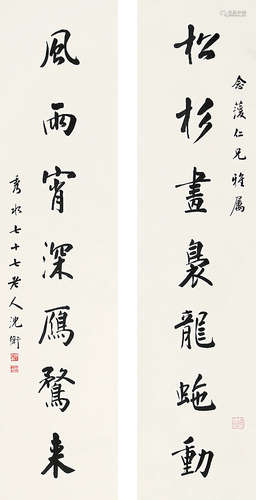 念蓤仁兄雅属
松杉晝裊龍虵動
風雨宵深鴈鶩来
秀水七十七老人沈衛